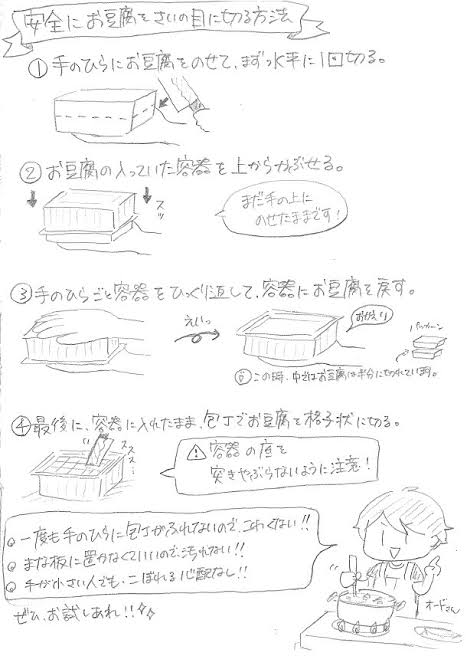 安全にお豆腐をさいの目に切る方法
①手のひらにお豆腐をのせて、まず水平に1回切る。
②お豆腐の入っていた容器を上からかぶせる。
スッ
まだ手の上に
のせたままです!
③手のひらごと容器をひっくり返して、容器にお豆腐を戻す。
えいっ
おかえり
パッカーン
この時、中ではお豆腐は半分に切れています。
④最後に、容器に入れたまま、包丁でお豆腐を格子状に切る。
ススス…
容器の底を
突きやぶらないように注意!
一度も手のひらに包丁がふれないので、こわくない!!
まな板に置かなくていいので汚れない!!
手が小さい人でも、こぼれる心配なし!!
ぜひ、お試しあれ!!
オードさん